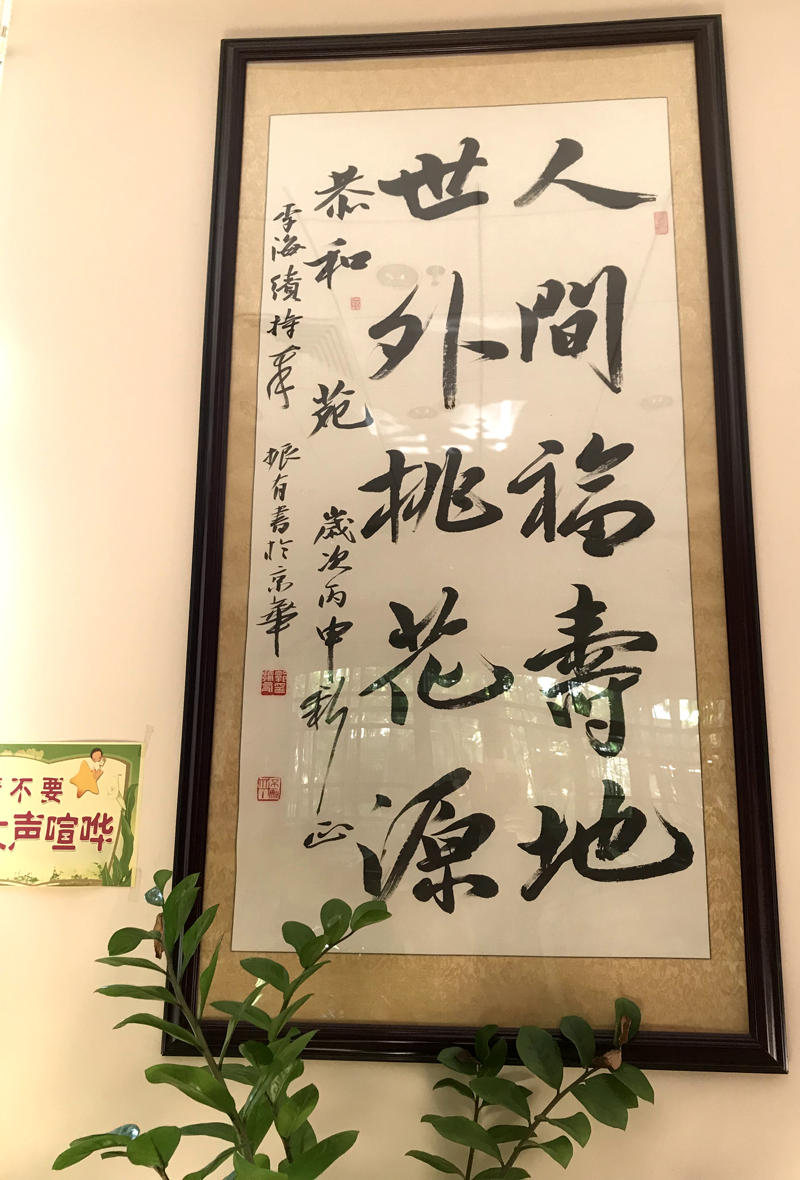 人間福壽地
世外桃花源
恭和苑 歲次丙申新正
海績持 振有書於京華
不要
大声喧哗